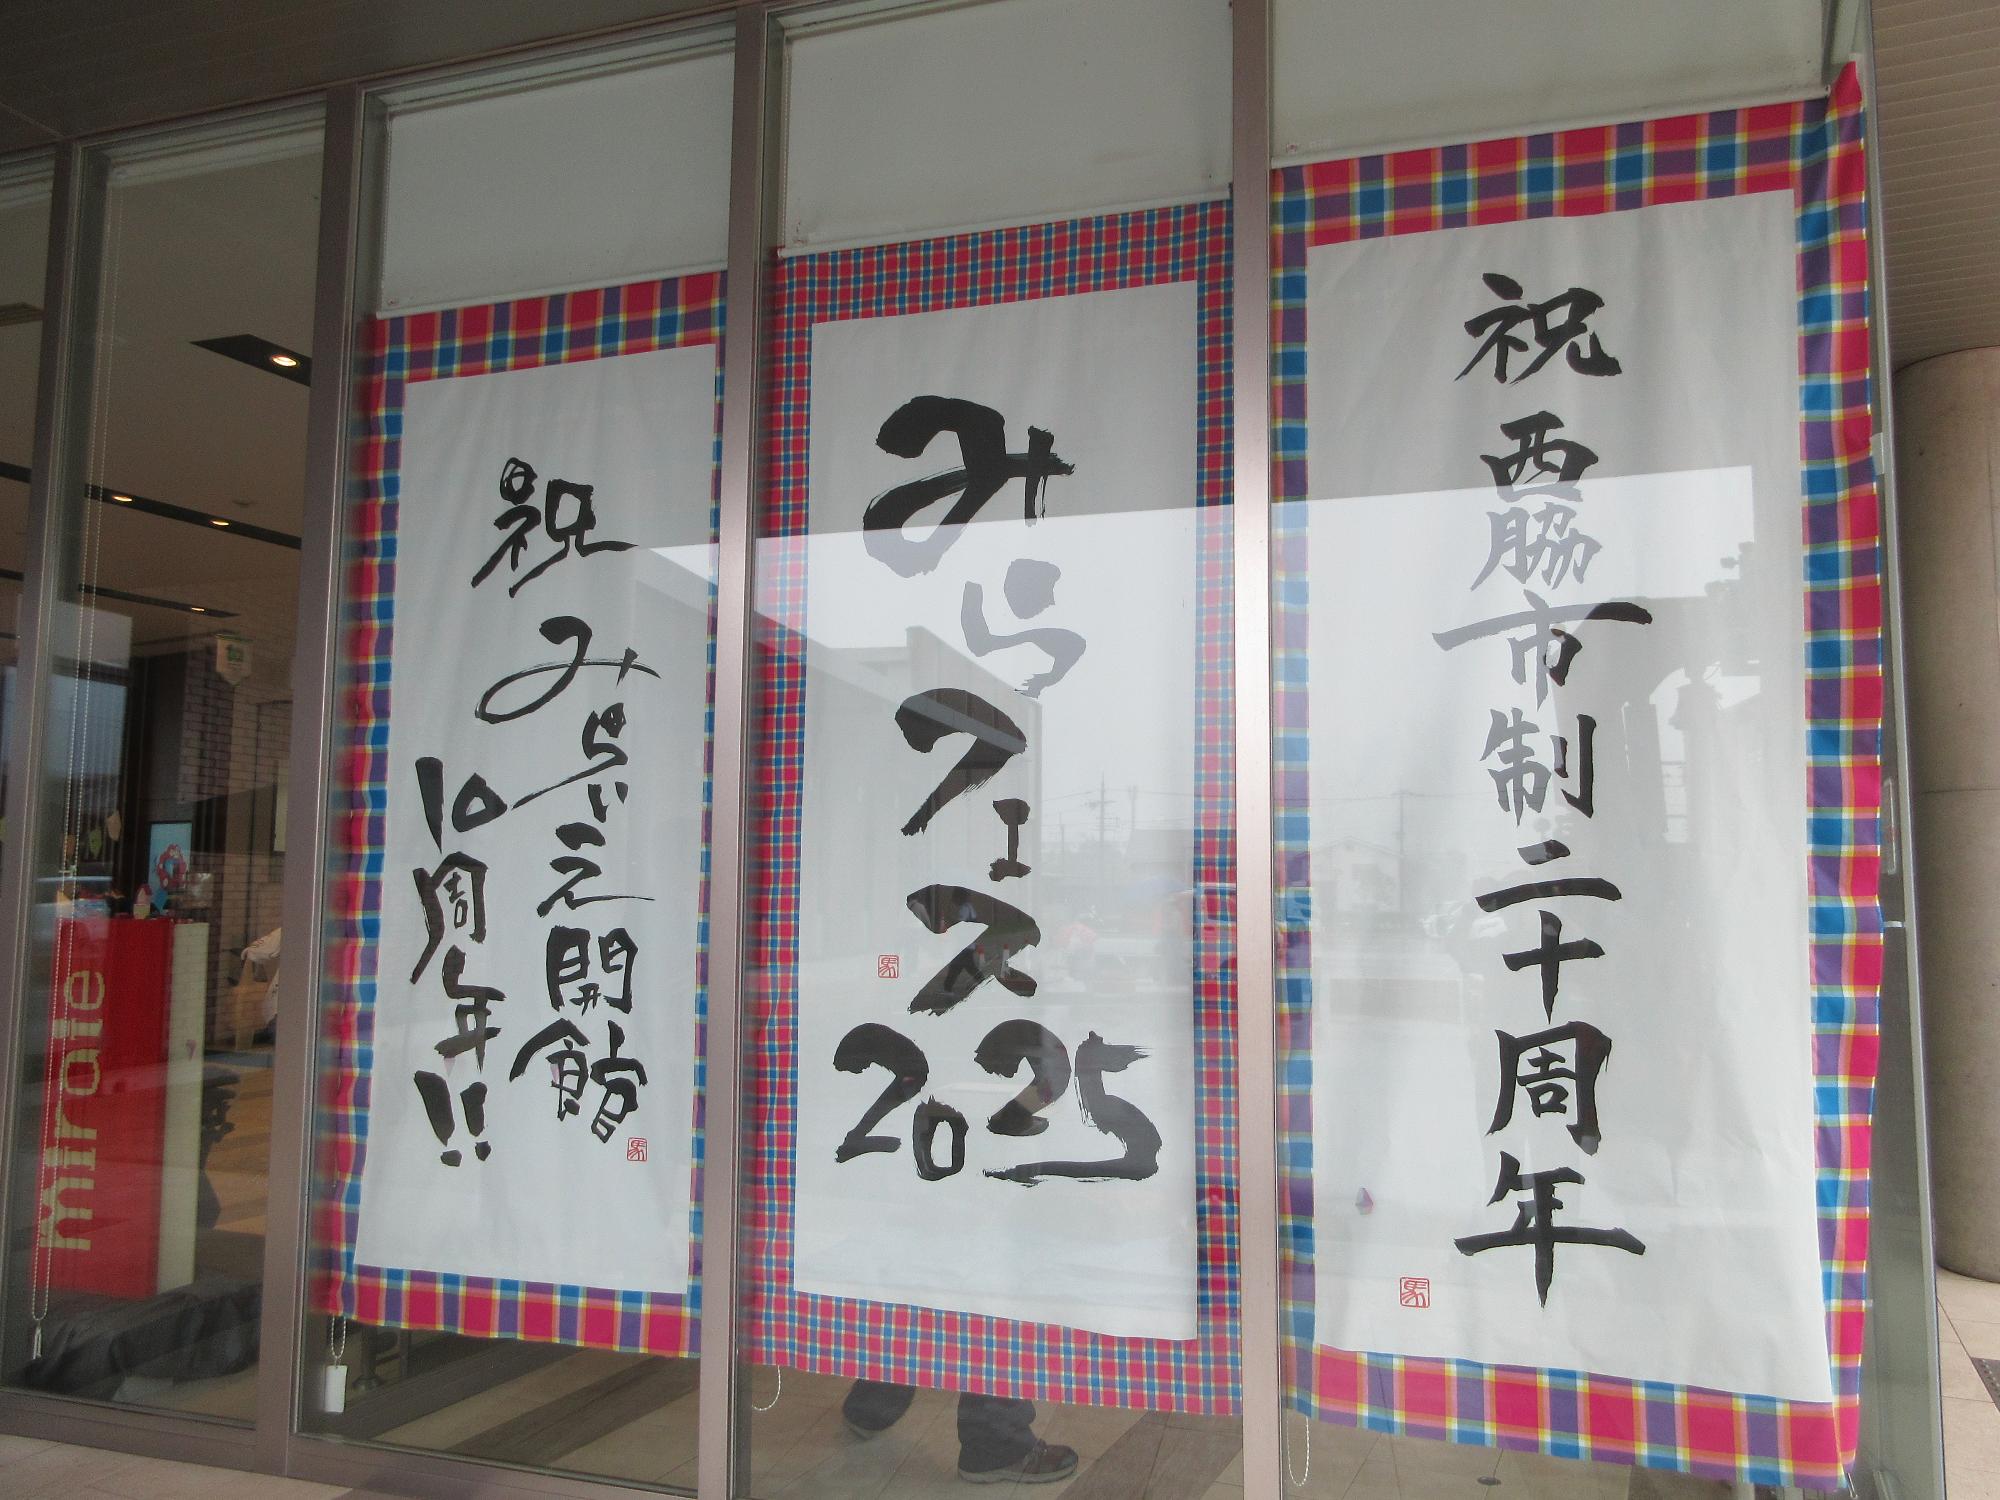 祝 西脇市制二十周年
みらフェス
2025
祝 みらいえ開館
10周年!!
miraie